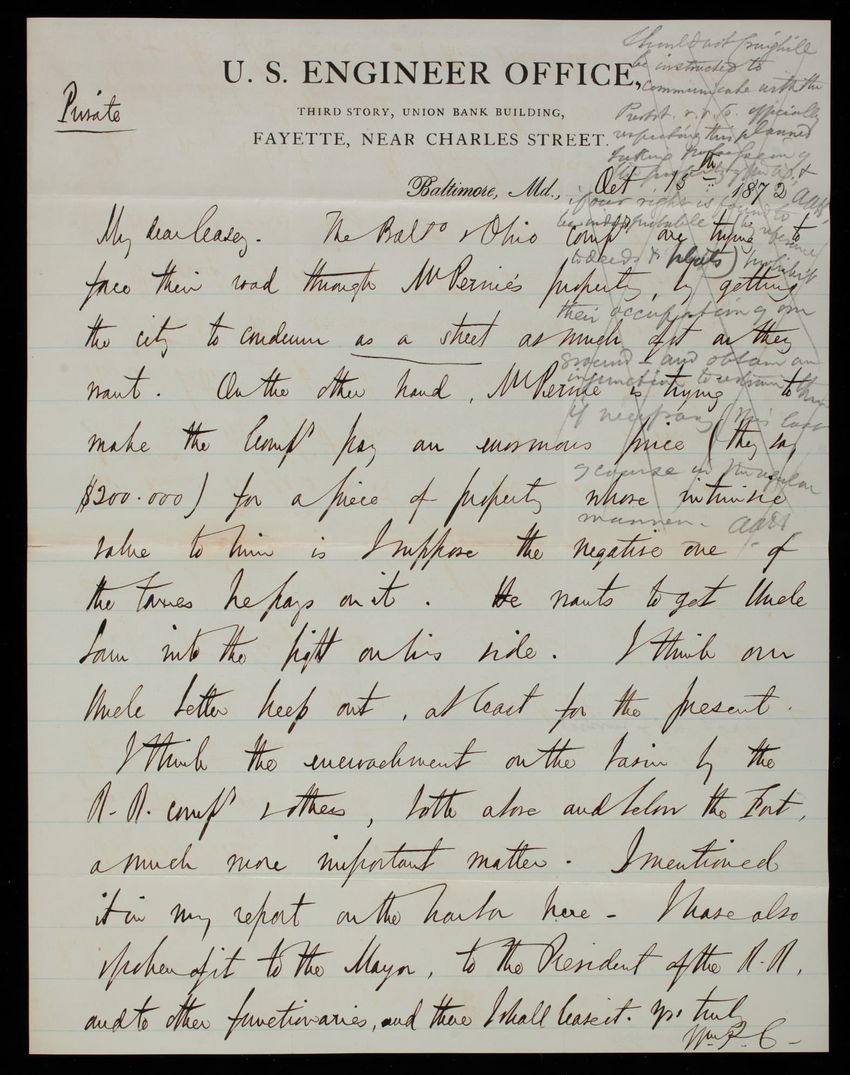 Private
U. S. ENGINEER OFFICE,
THIRD STORY, UNION BANK BUILDING,
FAYETTE, NEAR CHARLES STREET.
Baltimore, Md., Oct 15th 1872
My dear Casey. The Balto & Ohio Compy are trying to
force their road through McPernie's property, by getting
the city to condemn as a street as much of it as they
want. On the other hand, McPernie is trying to
make the Compy pay an enormous price (they say
$200.000) for a piece of property whose intrinsic
value to him is I suppose the negative one of
the taxes he pays on it. He wants to get Uncle
Sam into the fight on his side. I think our
Uncle better keep out, at least for the present.
I think the encroachment on the basin by the
R. R. compy & others, both above and below the Fort,
a much more important matter. I mentioned
it in my report on the harbor here - I have also
spoken of it to the Mayor, to the President of the R. R.
and to other functionaries, and there I shall leave it. Yrs truly
Wm P. C-
Should not Craighill
be instructed to
communicate with the
Presdt. officially
respecting this planned
taking possession of
if our right is
to deeds & plats) prohibit
their occupation of our
ground - and obtain an
injunction to restrain them
if necessary (this last
of course in the regular
manner.